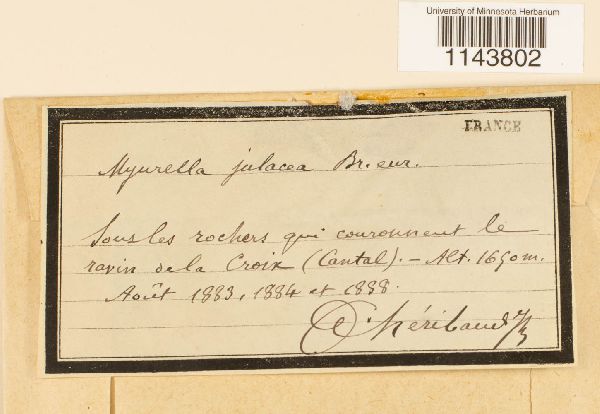 University of Minnesota Herbarium
1143802
FRANCE
Myurella julacea Br. eur.
Sous les rochers qui couronnent le
ravin de la Croix (Cantal). — Alt. 1650 m.
Août 1883, 1884 et 1888.
Héribaud